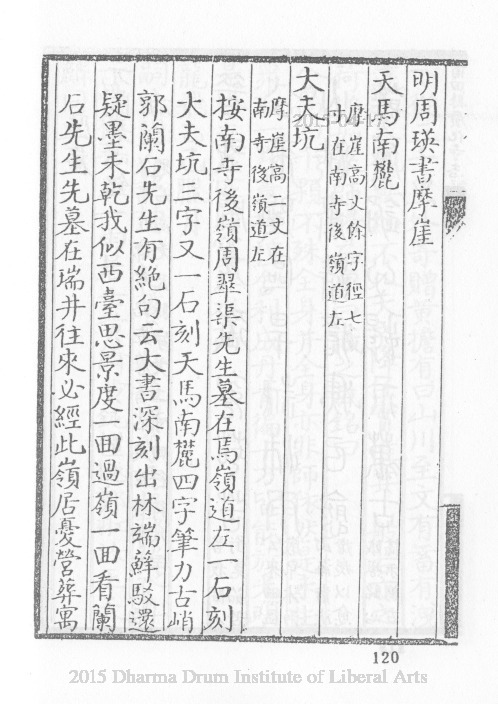 明周瑛書摩崖
天馬南麓
摩崖高丈餘字徑七
寸在南寺後嶺道左
大夫坑
摩崖高二丈在
南寺後嶺道左
按南寺後嶺周翠渠先生墓在焉嶺道左一石刻
大夫坑三字又一石刻天馬南麓四字筆力古峭
郭蘭石先生有絕句云大書深刻出林端蘚駁還
疑墨未乾我似西臺思景度一回過嶺一回看蘭
石先生先墓在瑞井往來必經此嶺居憂營葬寓
120
2015 Dharma Drum Institute of Liberal Arts